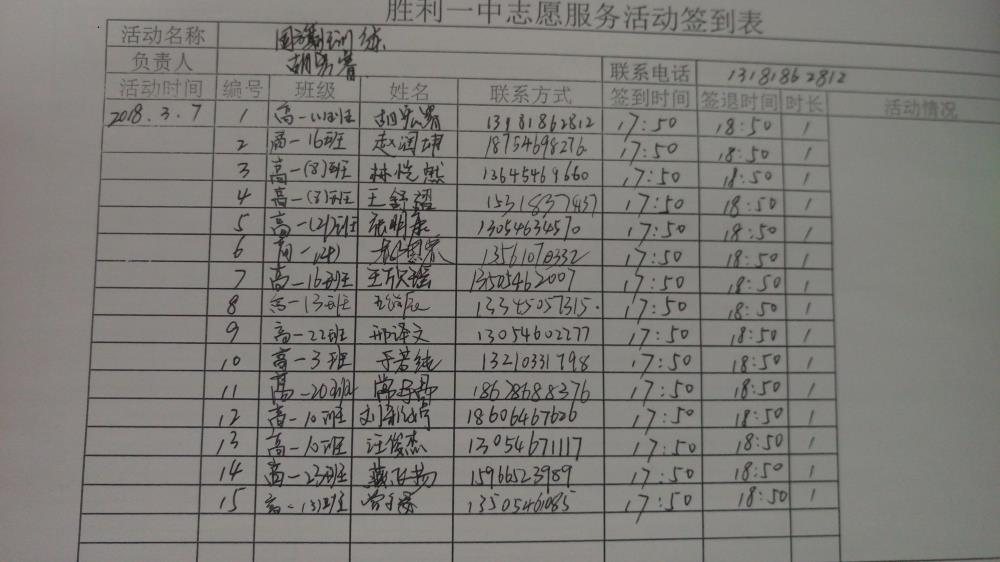 胜利一中志愿服务活动签到表
活动名称 国旗班训练
负责人 联系电话 13181862812
活动时间 编号 班级 姓名 联系方式 签到时间 签退时间 时长 活动情况
2018.3.7 1 高一 班 13181862812 17:50 18:50 1
2 高一16班 赵润 18754698276 17:50 18:50 1
3 高一(8)班 林恺然 13645469660 17:50 18:50 1
4 高一(3)班 王舒 17:50 18:50 1
5 高一(21)班 张明 13054634570 17:50 18:50 1
6 高一(24) 13561070332 17:50 18:50 1
7 高一16班 王 瑶 13505462007 17:50 18:50 1
8 高一13班 13345057315 17:50 18:50 1
9 高一22班 邢译文 13054602277 17:50 18:50 1
10 高一3班 于若纯 13210331798 17:50 18:50 1
11 高一20班 18628688376 17:50 18:50 1
12 高一10班 刘 18606467626 17:50 18:50 1
13 高一10班 汪俊杰 13054671117 17:50 18:50 1
14 高一23班 15966523989 17:50 18:50 1
15 高一(3)班 13505461085 17:50 18:50 1